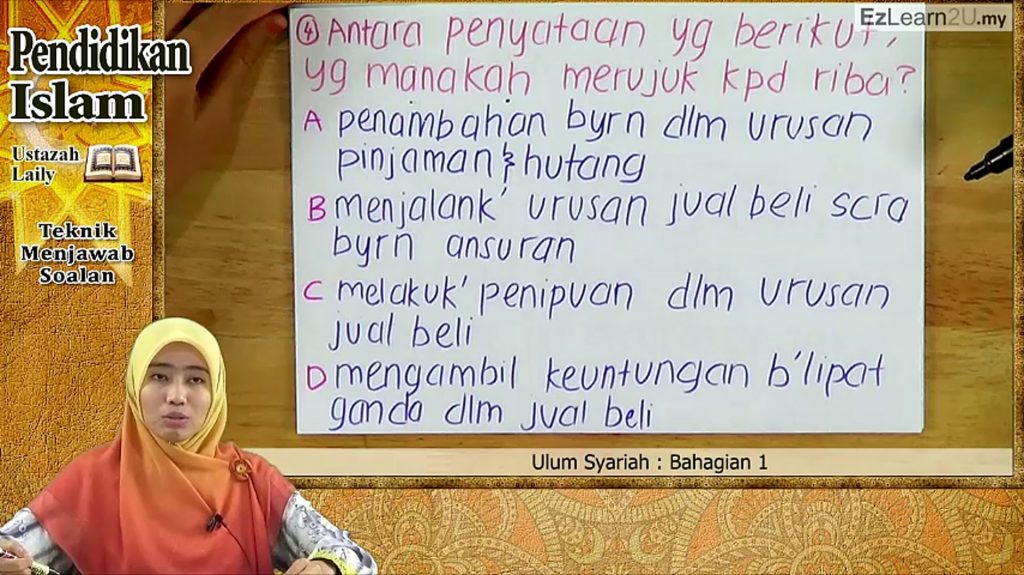 EzLearn2U.my
Pendidikan
Islam
Ustazah
Laily
Teknik
Menjawab
Soalan
④ Antara penyataan yg berikut,
yg manakah merujuk kpd riba?
A penambahan byrn dlm urusan
pinjaman & hutang
B menjalank' urusan jual beli scra
byrn ansuran
C melakuk' penipuan dlm urusan
jual beli
D mengambil keuntungan b'lipat
ganda dlm jual beli
Ulum Syariah : Bahagian 1